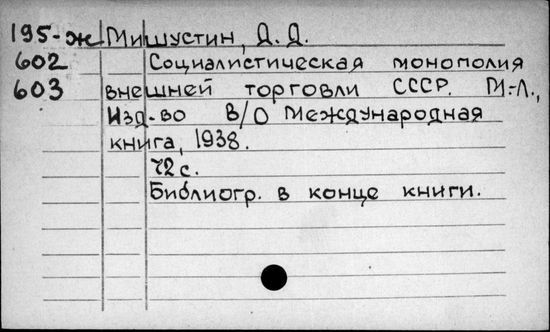 195-ж Мишустин, Д. Д.
602 Социалистическая монополия
603 внешней торговли СССР. М.-Л.,
Изд-во В/О Международная
книга, 1938.
72 с.
Библиогр. в конце книги.